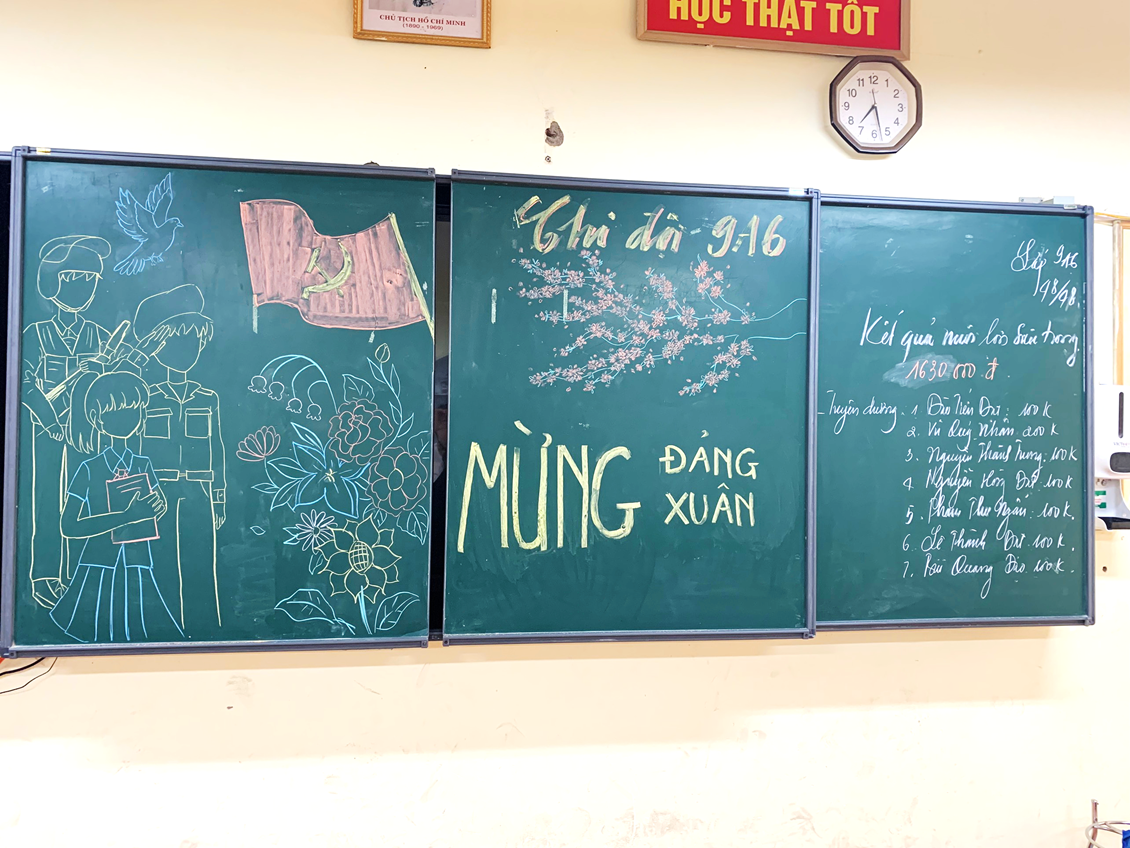 CHỦ TỊCH HỒ CHÍ MINH
(1890 - 1969)
HỌC THẬT TỐT
12
1
2
3
4
5
6
7
8
9
10
11
Chi đội 9A6
MỪNG
ĐẢNG
XUÂN
Lớp 9A6
48/48.
Kết quả nuôi lợn siêu trọng
1630.000 đ.
- Tuyên dương. 1 Đào Tiến Đạt: 100K
2. Vũ Quý Nhân 200K
3. Nguyễn Thành Trung: 100K
4. Nguyễn Hồng Đạt 100K
5. Phạm Thu Ngân: 100K.
6. Lê Thành Đạt 100K.
7. Bùi Quang Đạo 100K.